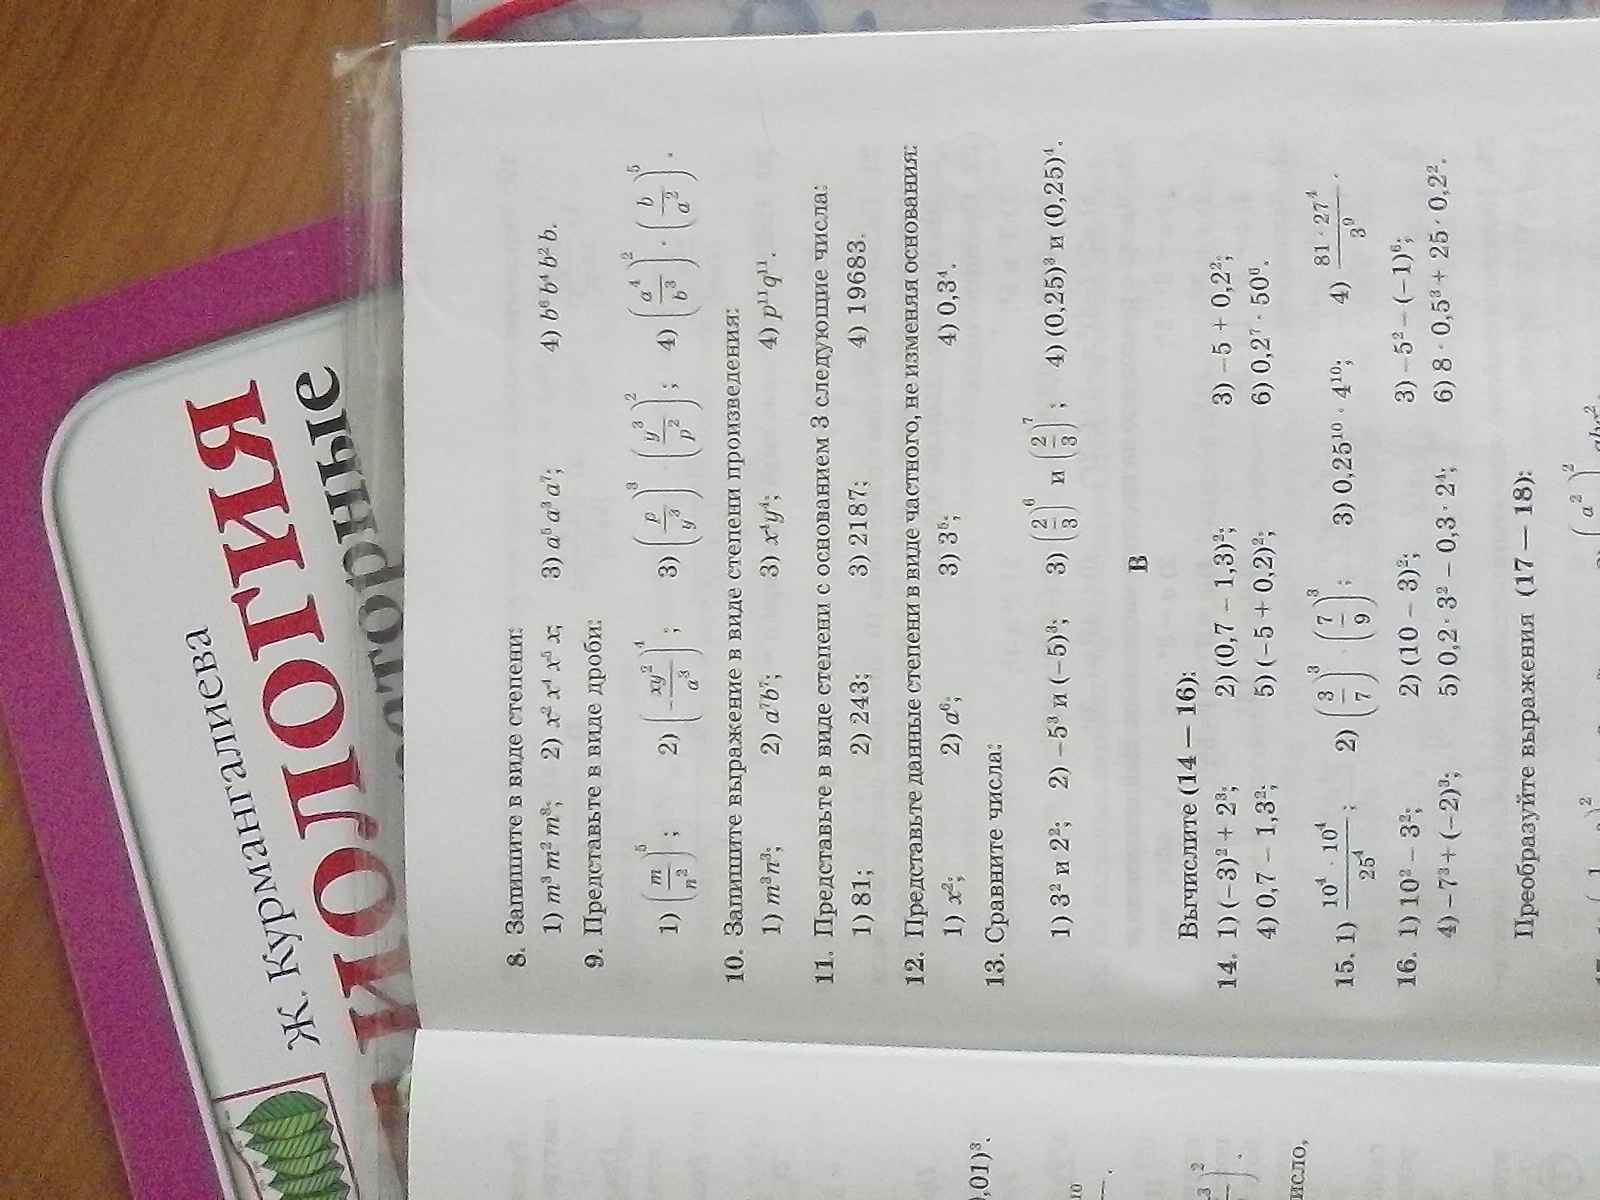 Ж. Курмангалиева
ИОЛОГИЯ
8. Запишите в виде степени:
1) m³ m² m⁸; 2) x² x⁴ x⁵ x; 3) a⁵ a³ a⁷; 4) b⁶ b⁴ b² b.
9. Представьте в виде дроби:
1) (m/n²)⁵; 2) (−xy²/a³)⁴; 3) (p/y³)³ · (y³/p²)²; 4) (a⁴/b³)² · (b/a²)⁵.
10. Запишите выражение в виде степени произведения:
1) m³n³; 2) a⁷b⁷; 3) x⁴y⁴; 4) p¹¹q¹¹.
11. Представьте в виде степени с основанием 3 следующие числа:
1) 81; 2) 243; 3) 2187; 4) 19683.
12. Представьте данные степени в виде частного, не изменяя основания:
1) x²; 2) a⁶; 3) 3⁵; 4) 0,3⁴.
13. Сравните числа:
1) 3² и 2²; 2) −5³ и (−5)³; 3) (2/3)⁶ и (2/3)⁷; 4) (0,25)³ и (0,25)⁴.
В
Вычислите (14 — 16):
14. 1) (−3)² + 2³; 2) (0,7 − 1,3)²; 3) −5 + 0,2²;
4) 0,7 − 1,3²; 5) (−5 + 0,2)²; 6) 0,2⁷ · 50⁶.
15. 1) 10⁴ · 10⁴/25⁴; 2) (3/7)³ · (7/9)³; 3) 0,25¹⁰ · 4¹⁰; 4) 81 · 27⁴/3⁹.
16. 1) 10² − 3²; 2) (10 − 3)²; 3) −5² − (−1)⁶;
4) −7³ + (−2)³; 5) 0,2 · 3² − 0,3 · 2⁴; 6) 8 · 0,5³ + 25 · 0,2².
Преобразуйте выражения (17 — 18):
,01)³.
исло,